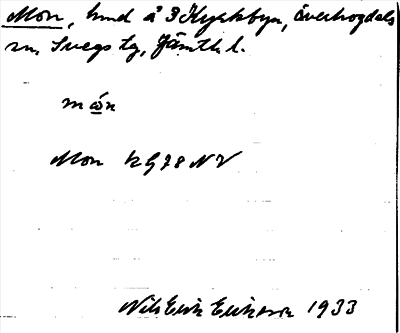 Mon, hmd å 3 Kyrkbyn, överhogdals
sn, Svegs tg, Jämtl. l.
mǫ́n
Mon kg 78 NV
Nils Erik Erikson 1933